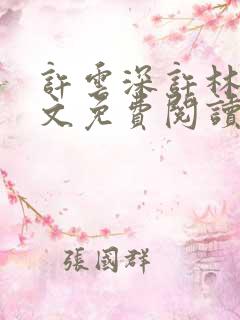 許雲深許林
文免費閱讀
張國群